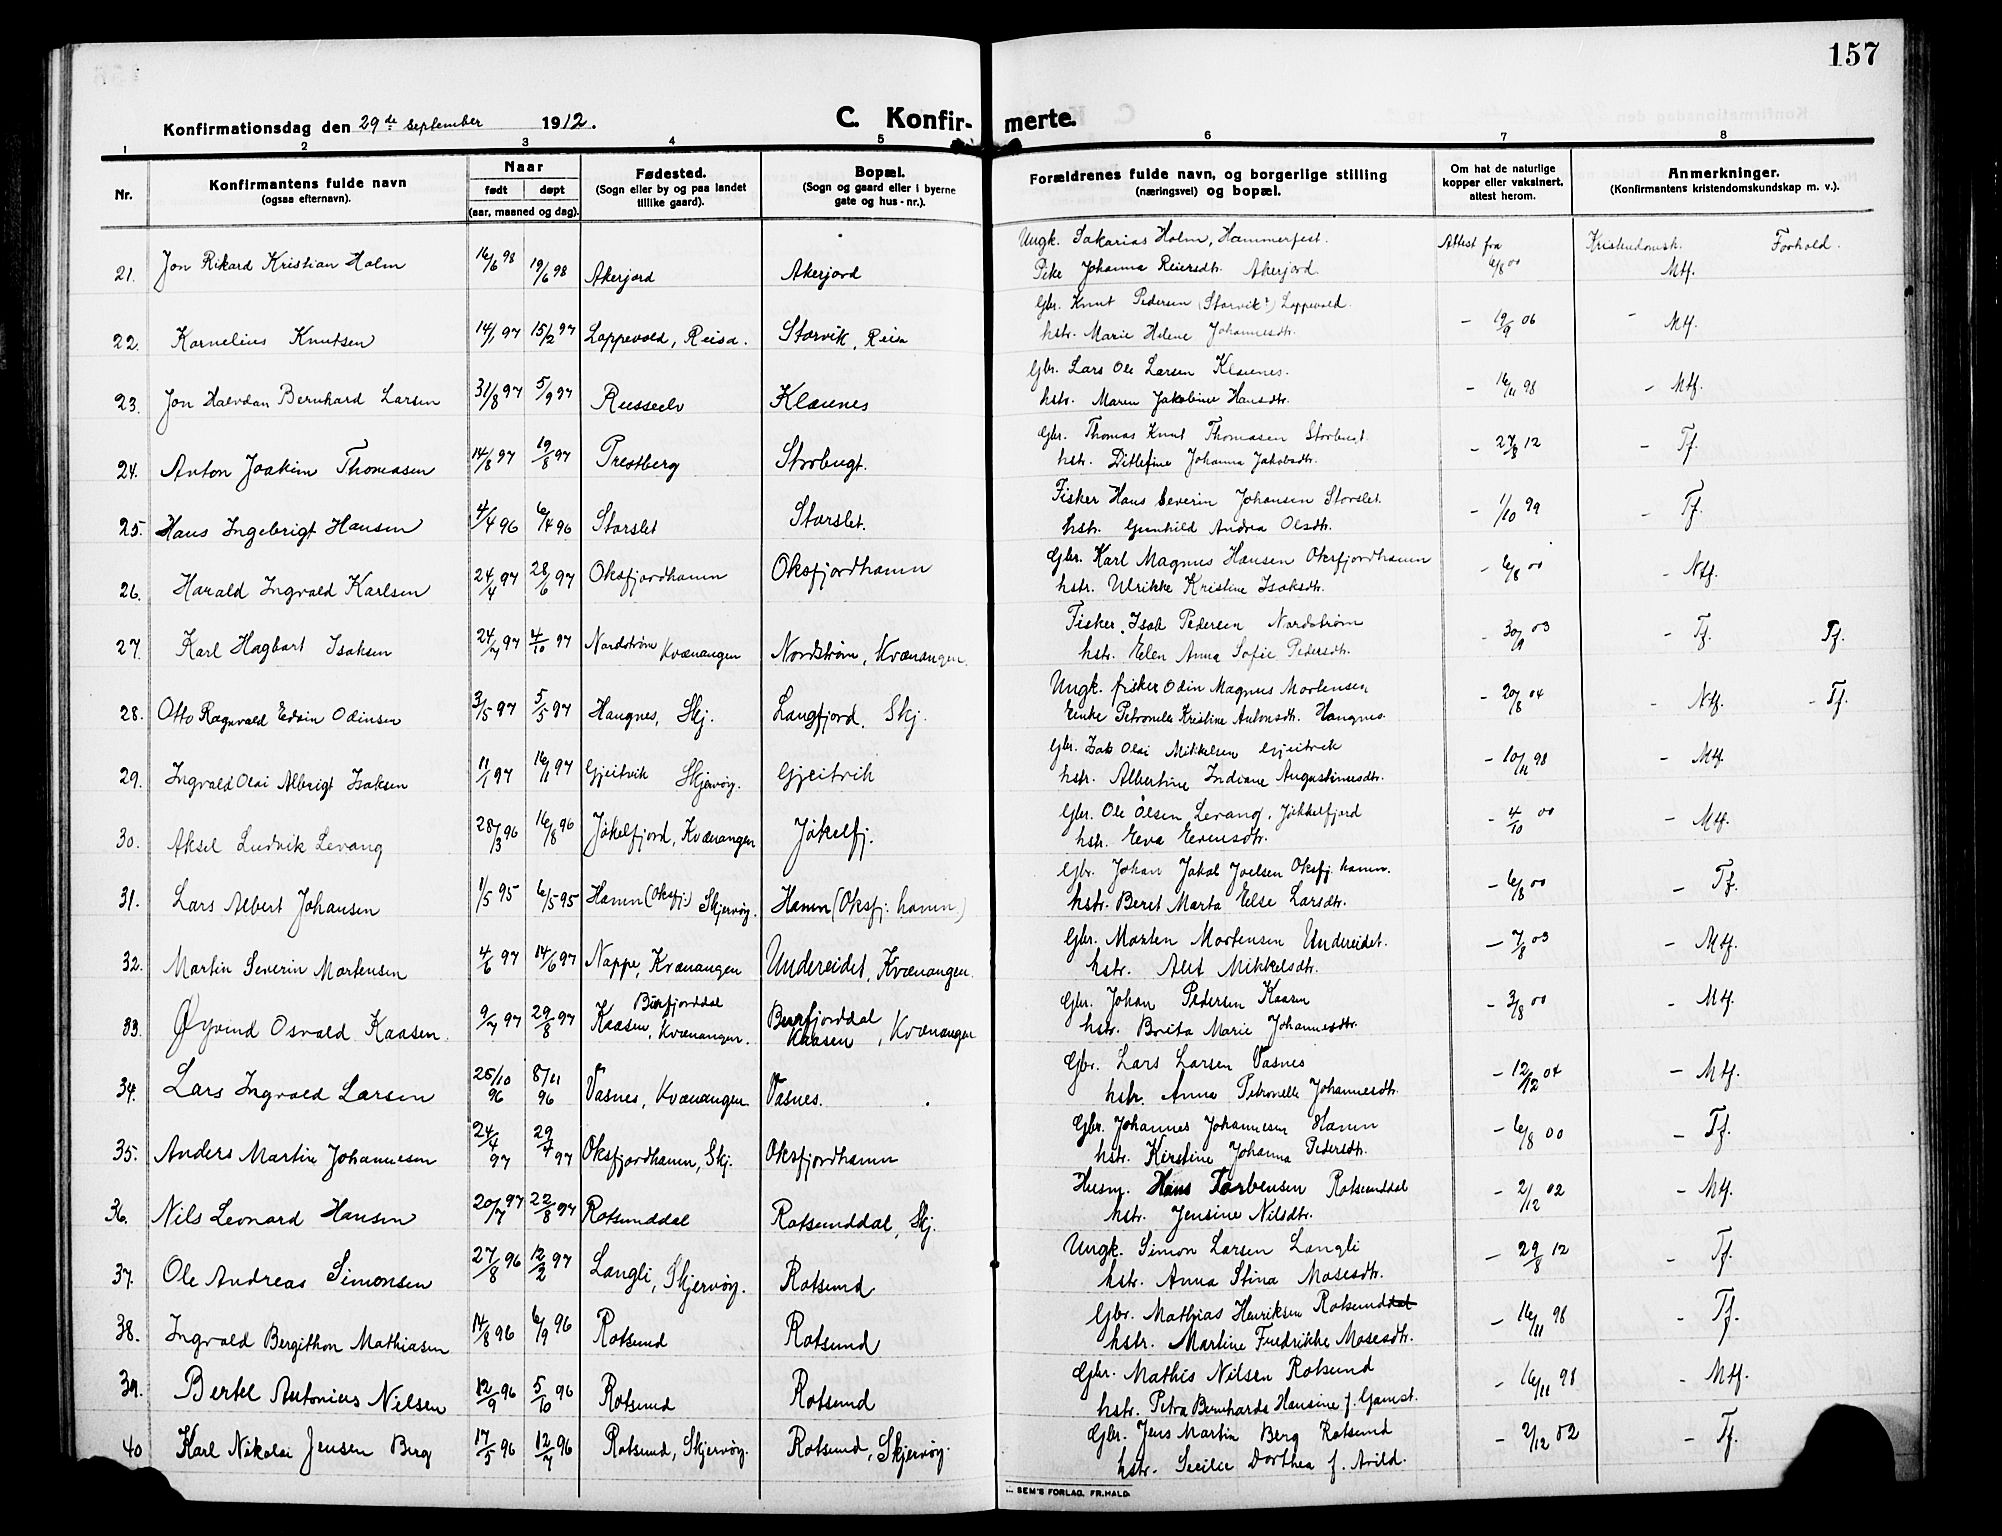 157
Konfirmationsdag den 29de september 1912.
C. Konfir- merte.
1 2 3 4 5 6 7 8
Nr.
Konfirmantens fulde navn
(ogsaa efternavn).
Naar
født døpt
(aar, maaned og dag).
Fødested.
(Sogn eller by og paa landet
tillike gaard).
Bopæl.
(Sogn og gaard eller i byerne
gate og hus-nr.).
Forældrenes fulde navn, og borgerlige stilling
(næringsvei) og bopæl.
Om hat de naturlige
kopper eller vaksinert,
attest herom.
Anmerkninger.
(Konfirmantens kristendomskundskap m. v.).
Ungk. Sakarias Holm, Hammerfest. Attest fra Kristendomsk. Forhold.
21. Jon Rikard Kristian Holm 16/6 98 19/6 98 Akerjord Akerjord Pike Johanna Reiersdtr. Akerjord. 6/8 00 Mtf.
Gbr. Knut Pedersen (Storvik?) Lappevold.
22. Kornelius Knutsen 14/1 97 15/2 97 Lappevold, Reisa. Storvik, Reisa hstr. Marie Helene Johannesdtr. - 19/9 06 - Mtf.
Gbr. Lars Ole Larsen Klæones.
23. Jon Halvdan Bernhard Larsen 31/8 97 5/9 97 Russeelv Klauenes hstr. Maren Jakobine Hansdtr. - 16/11 98 - Mtf.
Gbr. Thomas Knut Thomasen Storbugt.
24. Anton Joakim Thomasen 14/8 97 19/8 97 Prestberg Storbugt. hstr. Ditlefine Johanna Jakobsdtr. - 27/8 12 - Tf.
Fisker Hans Severin Johansen Storslet.
25. Hans Ingebrigt Hansen 4/4 96 6/4 96 Storslet Storslet. hstr. Gunhild Andrea Olsdtr. - 1/10 99 - Tf.
Gbr. Karl Magnus Hansen Oksfjordhamn
26. Harald Ingvald Karlsen 24/4 97 28/6 97 Oksfjordhamn Oksfjordhamn hstr. Ulrikke Kristine Isaksdtr. - 6/8 00 - Ntf.
Fisker Isak Pedersen Nordstrøm
27. Karl Hagbart Isaksen 24/7 97 4/10 97 Nordstrøm Kvænangen Nordstrøm, Kvænangen. hstr. Elen Anna Sofie Pedersdtr. - 30/9 03 - Tf. Tf.
Ungk. fisker Odin Magnus Mortensen
28. Otto Ragnvald Edvin Odinsen 3/5 97 5/5 97 Haugnes, Skj. Langfjord, Skj. Enke Petronelle Kristine Antonsdtr. Haugnes. - 20/8 04 - Ntf. - Tf.
Gbr. Isak Olai Mikkelsen Gjeitvik
29. Ingvald Olai Albrigt Isaksen 11/1 97 16/1 97 Gjeitvik Skjervøy. Gjeitvik hstr. Albertine Indiane Augustinusdtr. - 10/11 98 - Mtf.
Gbr. Ole Olsen Levang, Jøkkelfjord
30. Aksel Ludvik Levang 28/3 96 16/8 96 Jøkelfjord, Kvænangen Jøkelfj. hstr. Eva Evensdtr. - 4/10 00 - Mtf.
Gbr. Johan Jakob Joelsen Oksfj. hamn.
31. Lars Albert Johansen 1/5 95 6/5 95 Hamn (Oksfj.) Skjervøy. Hamn (Oksfj. hamn) hstr. Beret Marta Else Larsdtr. - 6/8 00 - Tf.
Gbr. Morten Mortensen Undereidet.
32. Martin Severin Mortensen 4/6 97 14/6 97 Nappe, Kvænangen Undereidet, Kvænangen. hstr. Alet Mikkelsdtr. - 7/8 03 - Mtf.
Gbr. Johan Pedersen Kaasen
33. Øyvind Osvald Kaasen. 9/7 97 29/8 97 Burfjorddal Kaasen, Kvænangen. Burfjorddal Kaasen, Kvænangen hstr. Brita Marie Johannesdtr. - 3/8 00 - Mtf.
Gbr. Lars Larsen Vasnes
34. Lars Ingvald Larsen 25/10 96 8/11 96 Vasnes, Kvænangen Vasnes. hstr. Anna Petronelle Johannesdtr. - 12/12 04 - Mtf.
Gbr. Johannes Johannesen Hamn
35. Anders Martin Johannesen 24/4 97 29/7 97 Oksfjordhamn, Skj. Oksfjordhamn hstr. Kirstine Johanna Pedersdtr. - 6/8 00 - Tf.
Husm. Hans Torbensen Rotsunddal
36. Nils Leonard Hansen 20/7 97 22/8 97 Rotsunddal Rotsunddal, Skj. hstr. Jensine Nilsdtr. - 2/12 02 - Mtf.
Ungk. Simon Larsen Langli
37. Ole Andreas Simonsen 27/8 96 12/2 97 Langli, Skjervøy. Rotsund hstr. Anna Stina Mosesdtr. - 29/8 12 - Tf.
Gbr. Mathias Henriksen Rotsunddal
38. Ingvald Bergithon Mathiasen 14/8 96 6/9 96 Rotsund Rotsund hstr. Martine Fredrikke Mosesdtr. - 16/11 98 - Tf.
Gbr. Mathis Nilsen Rotsund
39. Bertel Antonius Nilsen 12/9 96 5/10 96 Rotsund Rotsund hstr. Petra Bernharda Hansine f. Gamst. - 16/11 98 - Mtf.
Gbr. Jens Martin Berg Rotsund
40 Karl Nikolai Jensen Berg 17/5 96 12/7 96 Rotsund, Skjervøy. Rotsund, Skjervøy. hstr. Secilie Dorthea f. Arild. - 2/12 02 - Tf.
SEM'S FORLAG, FR.HALD.